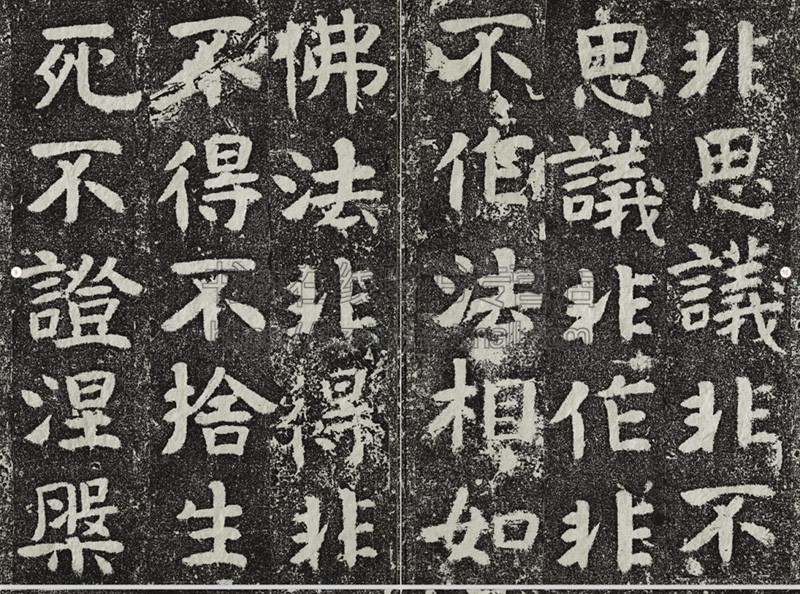 非思議非不
思議非作非
不作法相如
佛法非得非
不得不捨生
死不證涅槃